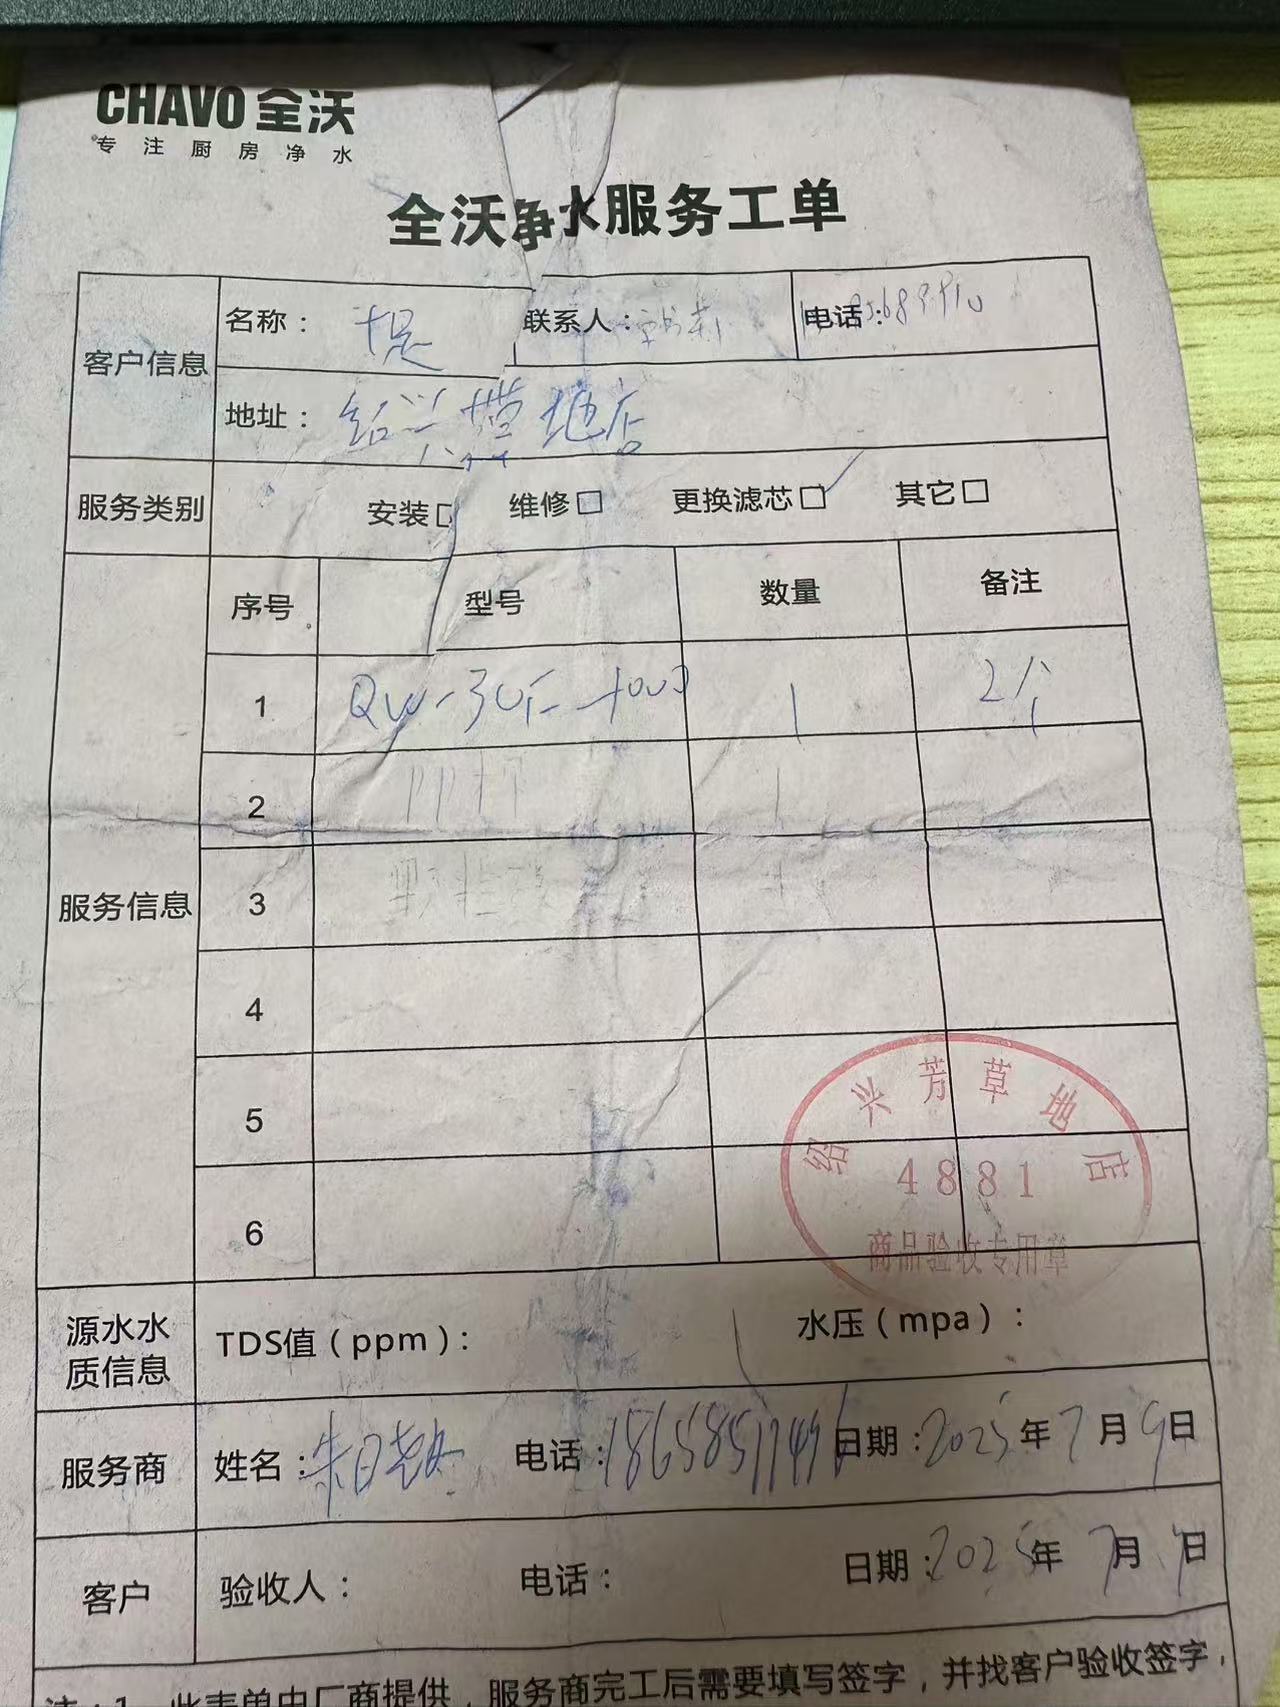 CHAVO 全沃
专注厨房净水
全沃净水服务工单
客户信息
名称：
联系人：
电话：
地址：绍兴 地店
服务类别
安装□ 维修□ 更换滤芯□ 其它□
服务信息
序号 型号 数量 备注
1 1 2个
2 1
3
4
5
6
绍兴芳草地店
4881
商品验收专用章
源水水质信息
TDS值（ppm）： 水压（mpa）：
服务商
姓名： 电话： 日期：2025年7月9日
客户
验收人： 电话： 日期：2025年7月 日
注：1、此表单由厂商提供，服务商完工后需要填写签字，并找客户验收签字，